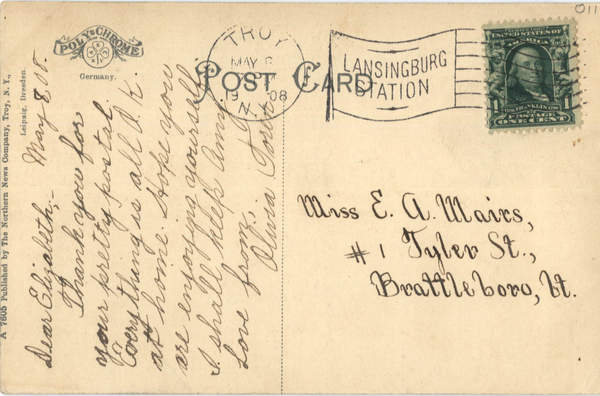 A 7605 Published by The Northern News Company, Troy, N. Y.,
Leipzig, Dresden.
POLY-CHROME
Germany.
POST CARD
TROY
MAY
19 08
N.Y.
LANSINGBURG
STATION
UNITED STATES OF AMERICA
FRANKLIN
POSTAGE
ONE CENT
1
1
011
May 8, 08.
Dear Elizabeth,-
Thank you for
your pretty postal.
Everything is all O.K.
at home. Hope you
are enjoying yourself.
I shall help Anna
Love from,
Olivia
Miss E. A. Mairs,
#1 Tyler St.,
Brattleboro, Vt.